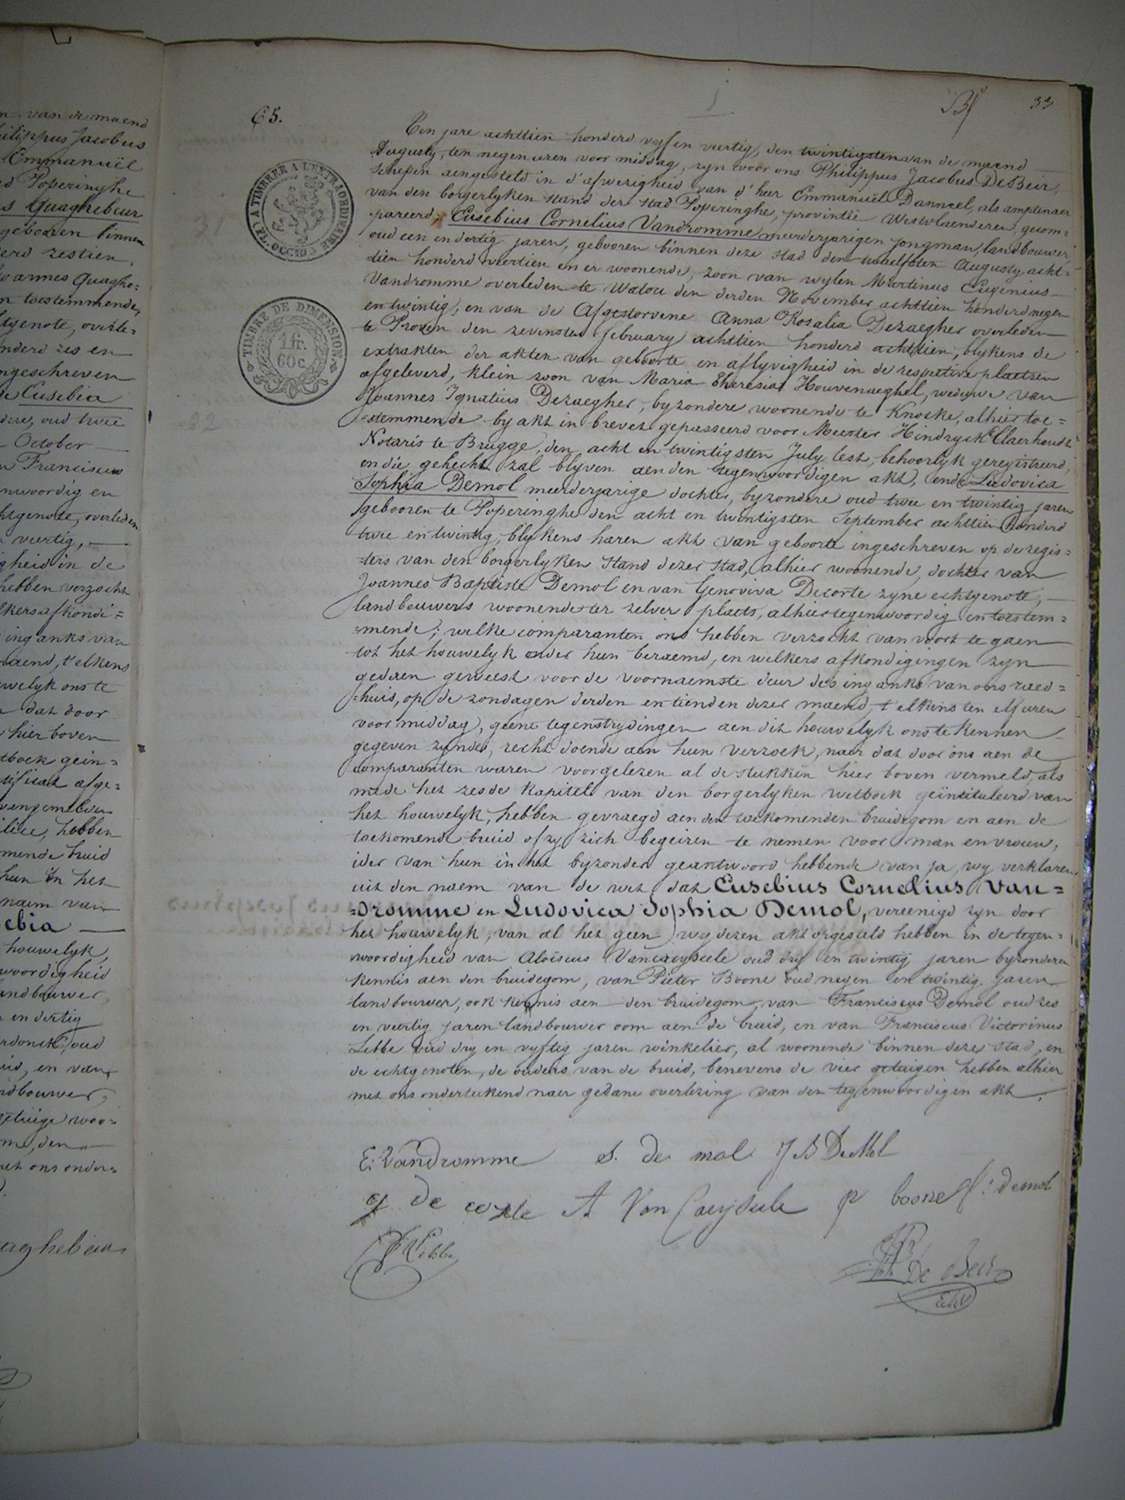 n van de maend
ilippus Jacobus
Emmanuël
d Poperinghe
s Quaghebuer
geboren binnen
erd zestien,
oannes Quaghe=
n toestemmende,
tgenote, overle=
nderd zes en
ngeschreven
Eusebia
oud twee
October
n Franciscus
nwoordig en
tgenote, overleden
veertig,
gheid in de
hebben verzocht
lkers afkondi=
ing anks van
aend, t'elkens
welyk ons te
dat door
hier boven
tboek gein=
tificat afge=
hebben
mende bruid
hun in het
naem van
ebia
houwelyk,
woordigheid
andbouwer,
en dertig
oud
uid, en van
ndbouwer,
getuige woo=
me, den
met ons onder=
aghebuer
65.
33
TIMBRE A L'EXTRAORDINAIRE
OCCID
TIMBRE DE DIMENSION
1 fr.
60 c.
Ten jare achttien honderd vyf en viertig, den twintigsten van de maend
Augusty, ten negen uren voor middag, zyn voor ons Philippus Jacobus DeBeir,
schepen aengesteld in d'afwezigheid van d'heer Emmanuël Danneel, als amptenaer
van den borgerlyken stand der stad Poperinghe, provintie Westvlaenderen, gecom=
pareerd, Eusebius Cornelius Vandromme, meerderjarigen jongman, landbouwer,
oud een en dertig jaren, gebooren binnen deze stad den twaelfsten Augusty acht=
tien honderd veertien en er woonende, zoon van wylen Martinus Eugenius
Vandromme overleden te Watou den derden November achttien honderd negen
en twintig, en van de Afgestorvene Anna Rosalia Dezaegher overleden
te Proven den zevensten february achttien honderd achttien, blykens de
extrakten der akten van geboorte en aflyvigheid in de respetive plaetsen
afgeleverd, klein zoon van Maria Theresia Houvenaeghel, weduwe van
Joannes Ignatius Dezaegher, byzondere woonende te Knocke, alhier toe=
stemmende by akt in brevet gepasseerd voor Meester Hindryck Claerhoudt
Notaris te Brugge, den acht en twintigsten July lest, behoorlyk geregistreerd,
en die gehecht zal blyven aen den tegenwoordigen akt, ende Ludovica
Sophia Demol meerderjarige dochter, byzondere oud twee en twintig jaren
gebooren te Poperinghe den acht en twintigsten September achttien honderd
twee en twintig, blykens haren akt van geboorte ingeschreven op de regis=
ters van den borgerlyken stand dezer stad, alhier woonende, dochter van
Joannes Baptiste Demol en van Genoviva Decorte zyne echtgenote,
landbouwers woonende ter zelver plaets, alhier tegenwoordig en toestem=
mende; welke comparanten ons hebben verzocht van voort te gaen
tot het houwelyk onder hun beraemd, en welkers afkondigingen zyn
gedaen geweest voor de voornaemste deur des ing anks van ons raed=
huis, op de zondagen derden en tienden dezer maend t'elkens ten elf uren
voor middag, geene tegenstrydingen aen dit houwelyk ons te kennen
gegeven zynde, recht doende aen hun verzoek, naer dat door ons aen de
comparanten waren voorgelezen al de stukken hier boven vermeld, als
mede het zesde kapitel van den borgerlyken wetboek geïntituleerd van
het houwelyk, hebben gevraegd aen den toekomenden bruidegom en aen de
toekomende bruid of zy zich begeiren te nemen voor man en vrouw,
ider van hun in het byzonder geantwoord hebbende van ja, wy verklaren
uit den naem van de wet dat Eusebius Cornelius Van=
dromme en Ludovica Sophia Demol, vereenigd zyn door
het houwelyk, van al het geen wy dezen akt opgesteld hebben in de tegen=
woordigheid van Aloïsius Vancayseele oud dry en twintig jaren byzonderen
kennis aen den bruidegom, van Pieter Boone oud negen en twintig jaren
landbouwer, ook kennis aen den bruidegom, van Franciscus Demol oud zes
en viertig jaren landbouwer oom aen de bruid, en van Franciscus Victorinus
Lebbe oud dry en vyftig jaren winkelier, al woonende binnen deze stad, en
de echtgenoten, de ouders van de bruid, benevens de vier getuigen hebben alhier
met ons onderteekend naer gedane overlezing van den tegenwoordigen akt.
E: Vandromme S. de mol J B DeMol
g de corte A Van Caeyseele p boone f: demol
Lebbe
De Beir